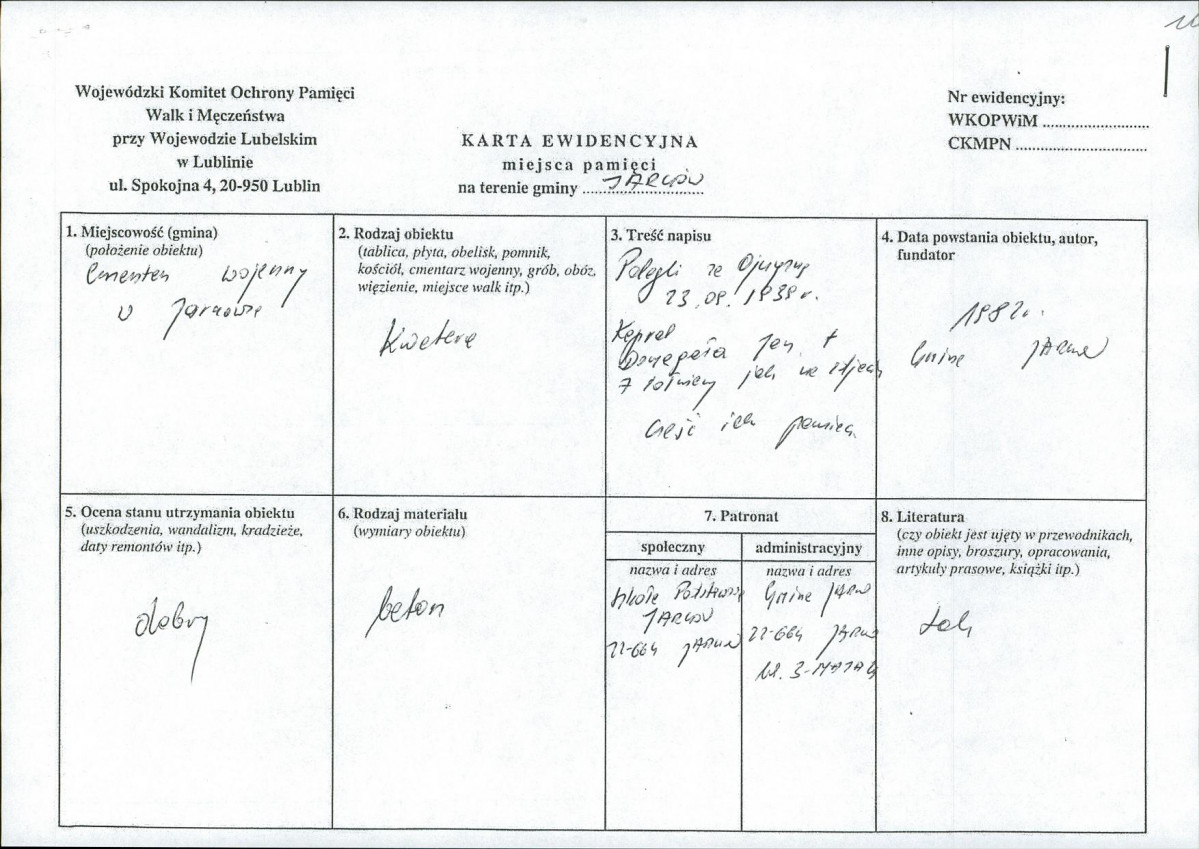 Wojewódzki Komitet Ochrony Pamięci
Walk i Męczeństwa
przy Wojewodzie Lubelskim
w Lublinie
ul. Spokojna 4, 20-950 Lublin
KARTA EWIDENCYJNA
miejsca pamięci
na terenie gminy JARCZÓW
Nr ewidencyjny:
WKOPWiM
CKMPN
1. Miejscowość (gmina)
(położenie obiektu)
Cmentarz wojenny
w Jarczowie
2. Rodzaj obiektu
(tablica, płyta, obelisk, pomnik,
kościół, cmentarz wojenny, grób, obóz,
więzienie, miejsce walk itp.)
Kwatera
3. Treść napisu
Polegli za Ojczyznę
23.09.1939 r.
Kapral
Jan +
7 żołnierzy jak na zdjęciu
Cześć ich pamięci
4. Data powstania obiektu, autor,
fundator
Gmina JARCZÓW
5. Ocena stanu utrzymania obiektu
(uszkodzenia, wandalizm, kradzieże,
daty remontów itp.)
dobry
6. Rodzaj materiału
(wymiary obiektu)
beton
7. Patronat
społeczny
nazwa i adres
Szkoła Podstawowa
JARCZÓW
22-664 JARCZÓW
administracyjny
nazwa i adres
Gmina JARCZÓW
22-664 JARCZÓW
ul. 3-MAJA
8. Literatura
(czy obiekt jest ujęty w przewodnikach,
inne opisy, broszury, opracowania,
artykuły prasowe, książki itp.)